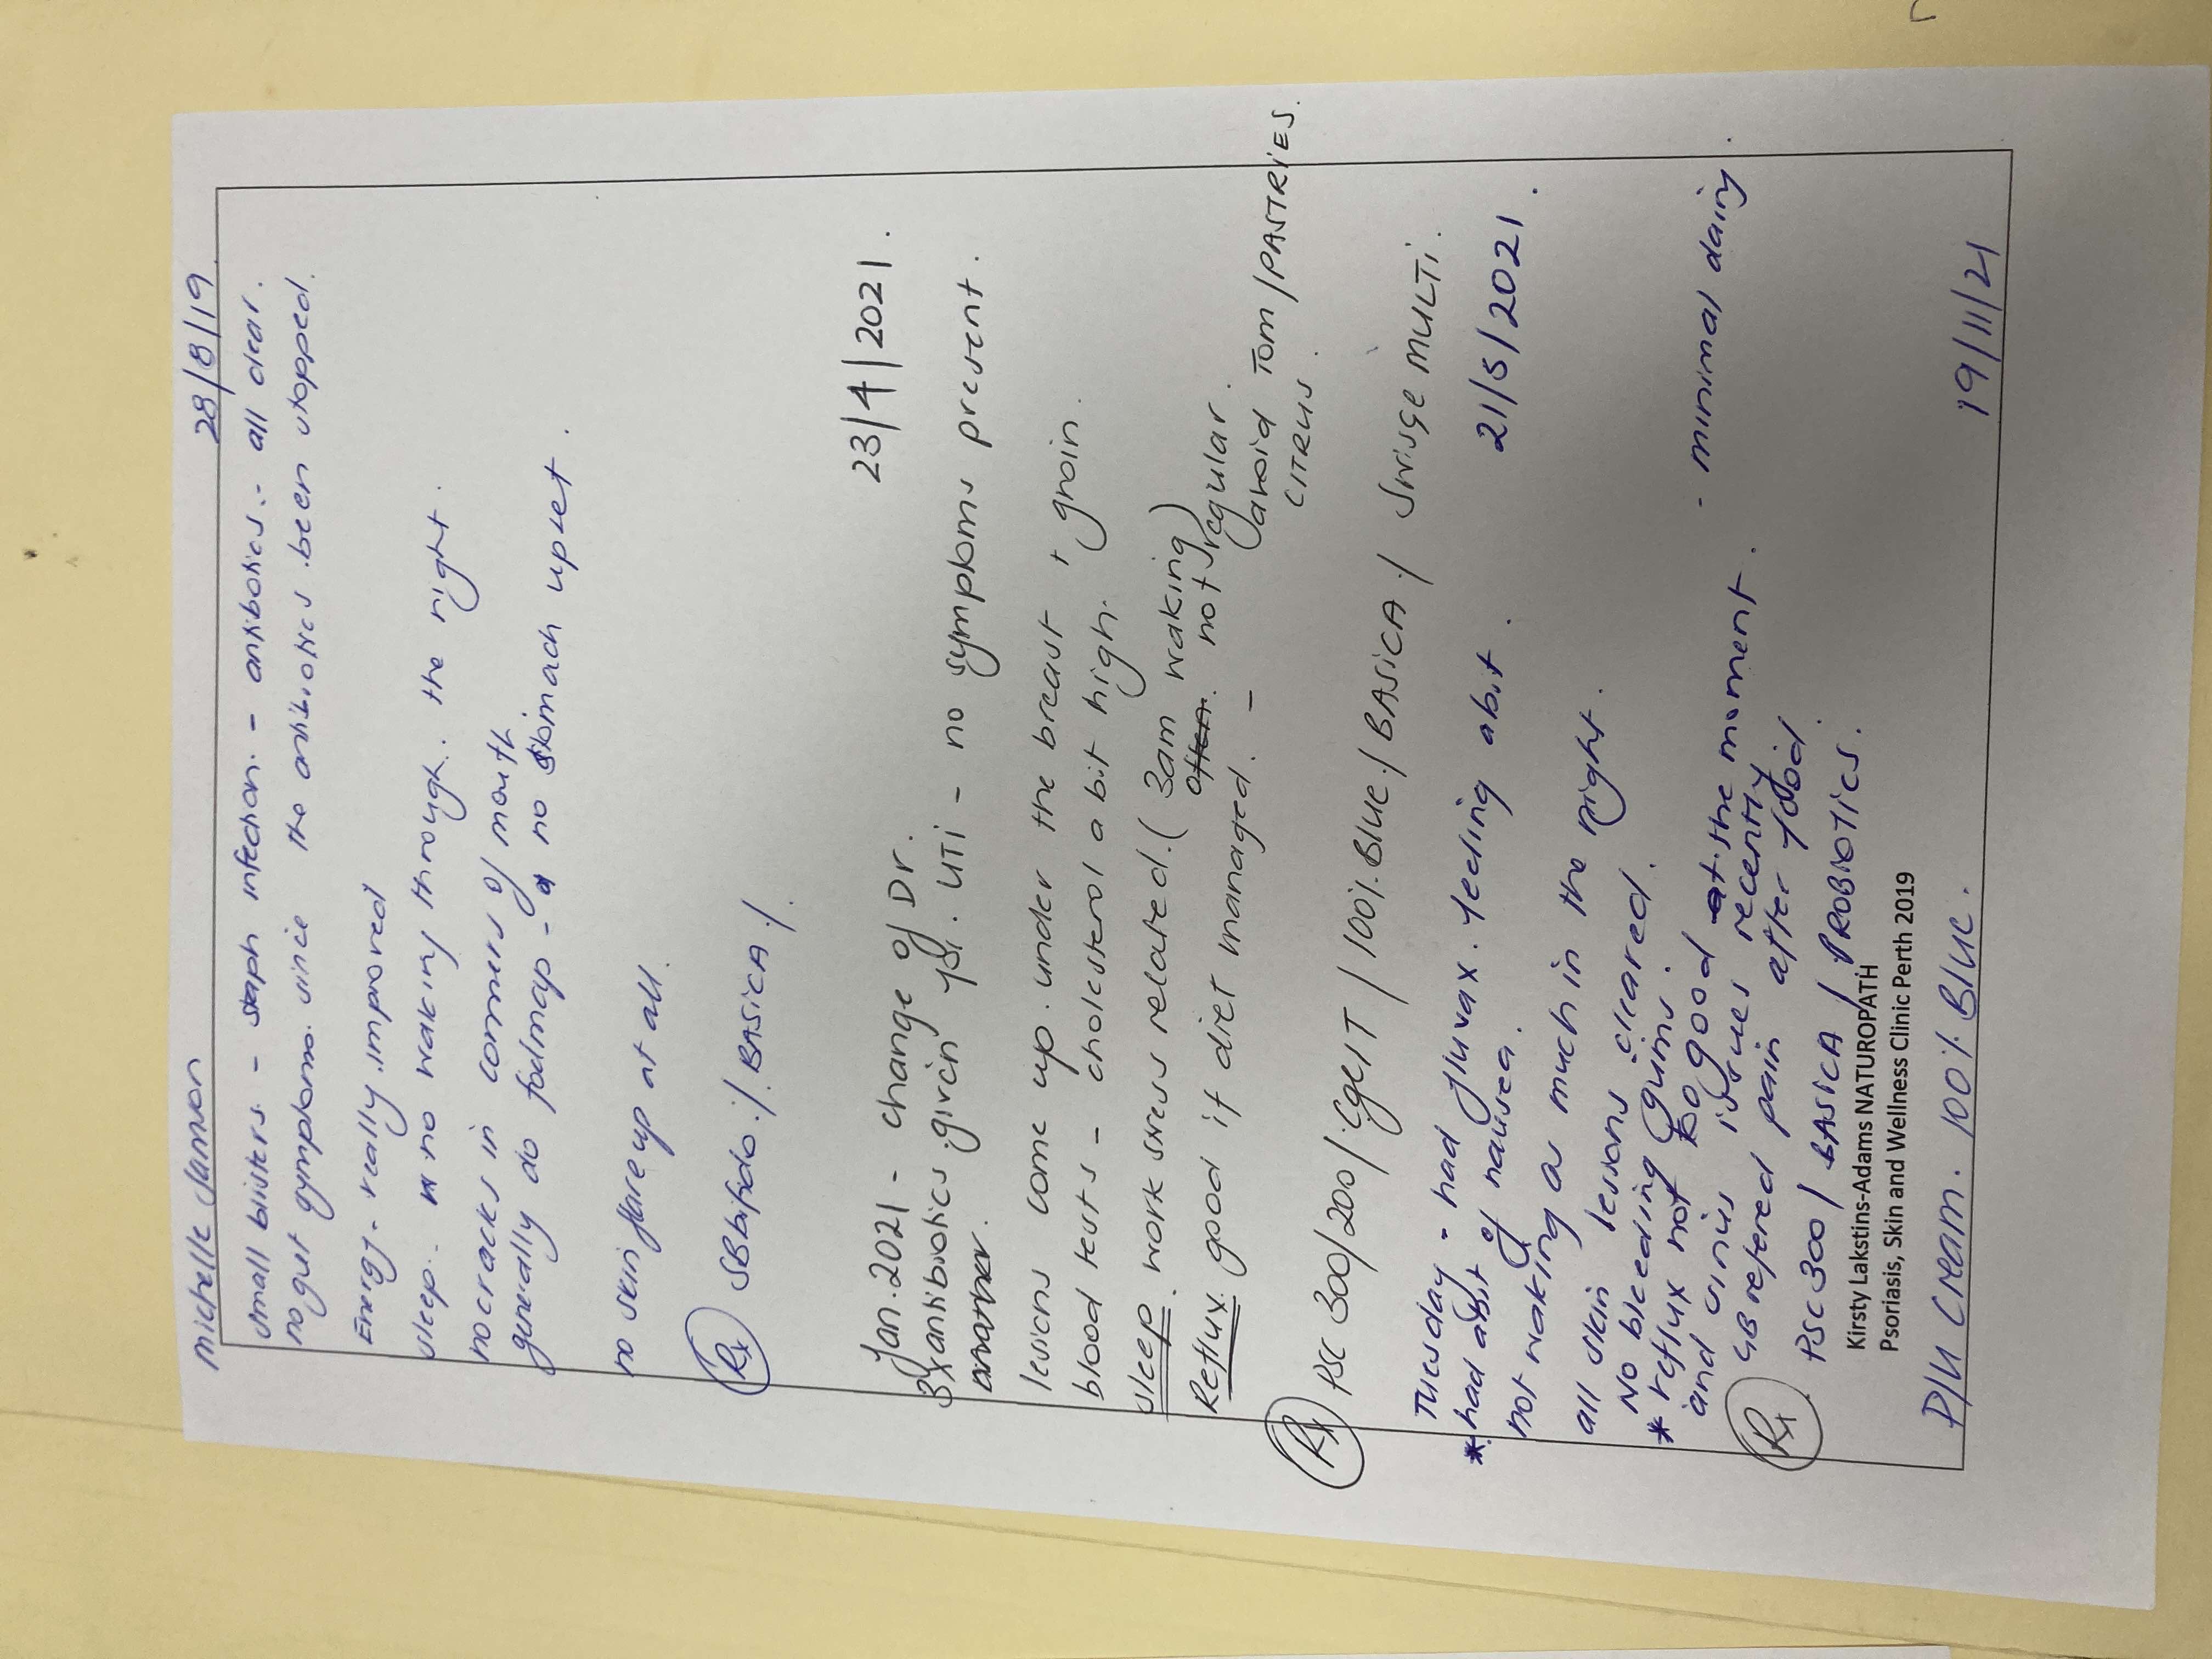 michelle Samson 28/8/19
small blisters. - staph infection. - antibotics.- all clear.
no gut symptoms since the antibiotics been stopped.
Energy - really improved
sleep. no waking through. the night.
no cracks in corners of mouth
generally do fodmap - no stomach upset.
no skin flare up at all.
Rx SBbifido ./. BASICA ./.
23/4/2021.
Jan. 2021 - change of Dr.
3x antibiotics given for. UTi - no symptoms present.
lesions come up. under the breast + groin.
blood tests - cholesterol a bit high.
sleep. work stress related. (3am waking)
not regular.
Reflux. good if diet managed. - avoid Tom/PASTRIES.
CITRUS.
Rx PSC 300/200/ /100%.Blue./BASICA./ Swisse MULTi.
21/5/2021.
Tuesday - had fluvax. feeling abit.
* had abit of nausea.
not waking as much in the night.
all skin lessons cleared.
No bleeding gums.
* reflux not so good at the moment. - minimal dairy.
and sinus issues recently
GB refered pain after food.
Rx PSC 300/ BASICA / PROBIOTICS.
Kirsty Lakstins-Adams NATUROPATH
Psoriasis, Skin and Wellness Clinic Perth 2019
P/U Cream. 100%. Blue. 19/11/21